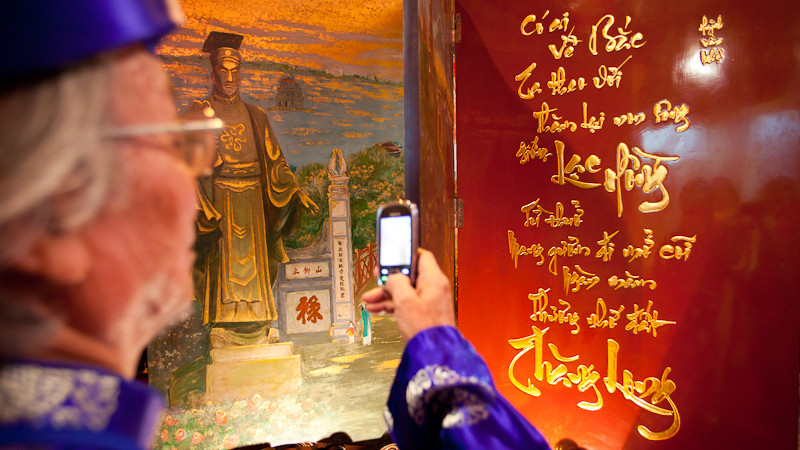 Có ai
về Bắc
Ta theo với
Thăm lại non sông
giống Lạc Hồng
Từ thuở
Mang gươm đi mở cõi
Ngàn năm
Thương nhớ đất
Thăng Long
祿